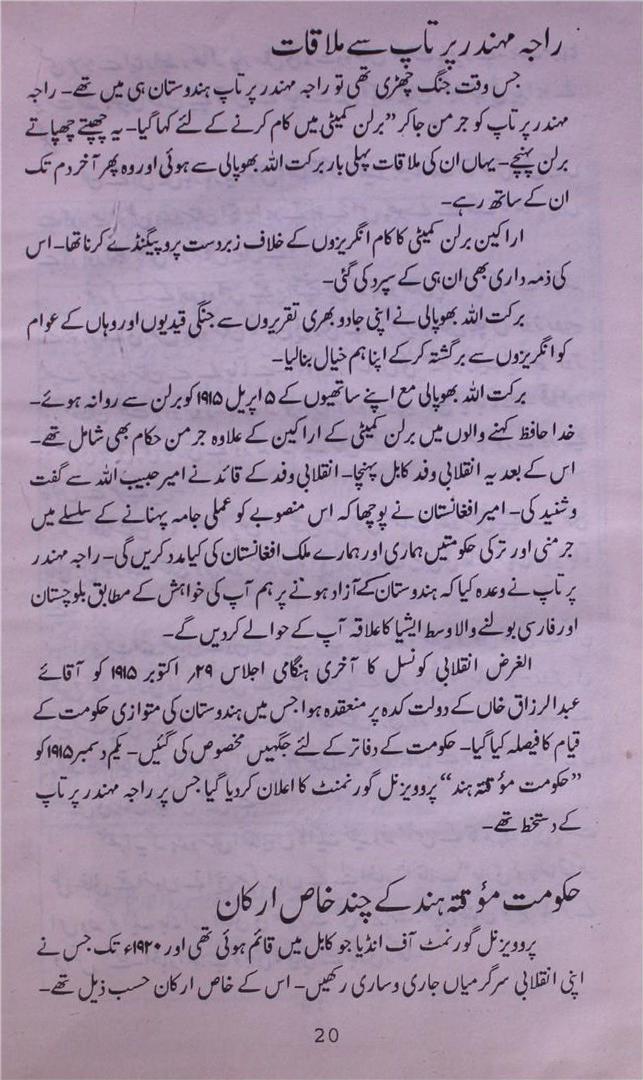 راجہ مہندر پرتاپ سے ملاقات
جس وقت جنگ چھڑی تھی تو راجہ مہندر پرتاپ ہندوستان ہی میں تھے۔ راجہ
مہندر پرتاپ کو جرمن جاکر ”برلن کمیٹی میں کام کرنے کے لئے کہا گیا۔ یہ چھپتے چھپاتے
برلن پہنچے۔ یہاں ان کی ملاقات پہلی بار برکت اللہ بھوپالی سے ہوئی اور وہ پھر آخر دم تک
ان کے ساتھ رہے۔
اراکین برلن کمیٹی کا کام انگریزوں کے خلاف زبردست پروپیگنڈے کرنا تھا۔ اس
کی ذمہ داری بھی ان ہی کے سپرد کی گئی۔
برکت اللہ بھوپالی نے اپنی جادو بھری تقریروں سے جنگی قیدیوں اور وہاں کے عوام
کو انگریزوں سے برگشتہ کرکے اپنا ہم خیال بنالیا۔
برکت اللہ بھوپالی مع اپنے ساتھیوں کے ۵ اپریل ۱۹۱۵ کو برلن سے روانہ ہوئے۔
خدا حافظ کہنے والوں میں برلن کمیٹی کے اراکین کے علاوہ جرمن حکام بھی شامل تھے۔
اس کے بعد یہ انقلابی وفد کابل پہنچا۔ انقلابی وفد کے قائد نے امیر حبیب اللہ سے گفت
و شنید کی۔ امیر افغانستان نے پوچھا کہ اس منصوبے کو عملی جامہ پہنانے کے سلسلے میں
جرمنی اور ترکی حکومتیں ہماری اور ہمارے ملک افغانستان کی کیا مدد کریں گی۔ راجہ مہندر
پرتاپ نے وعدہ کیا کہ ہندوستان کے آزاد ہونے پر ہم آپ کی خواہش کے مطابق بلوچستان
اور فارسی بولنے والا وسط ایشیا کا علاقہ آپ کے حوالے کردیں گے۔
الغرض انقلابی کونسل کا آخری ہنگامی اجلاس ۲۹؍ اکتوبر ۱۹۱۵ کو آقائے
عبدالرزاق خاں کے دولت کدہ پر منعقدہ ہوا جس میں ہندوستان کی متوازی حکومت کے
قیام کا فیصلہ کیا گیا۔ حکومت کے دفاتر کے لئے جگہیں مخصوص کی گئیں۔ یکم دسمبر ۱۹۱۵ کو
”حکومت مؤقتہ ہند“ پروویزنل گورنمنٹ کا اعلان کردیا گیا جس پر راجہ مہندر پرتاپ
کے دستخط تھے۔
حکومت مؤقتہ ہند کے چند خاص ارکان
پروویزنل گورنمنٹ آف انڈیا جو کابل میں قائم ہوئی تھی اور ۱۹۲۰ء تک جس نے
اپنی انقلابی سرگرمیاں جاری و ساری رکھیں۔ اس کے خاص ارکان حسب ذیل تھے۔
20